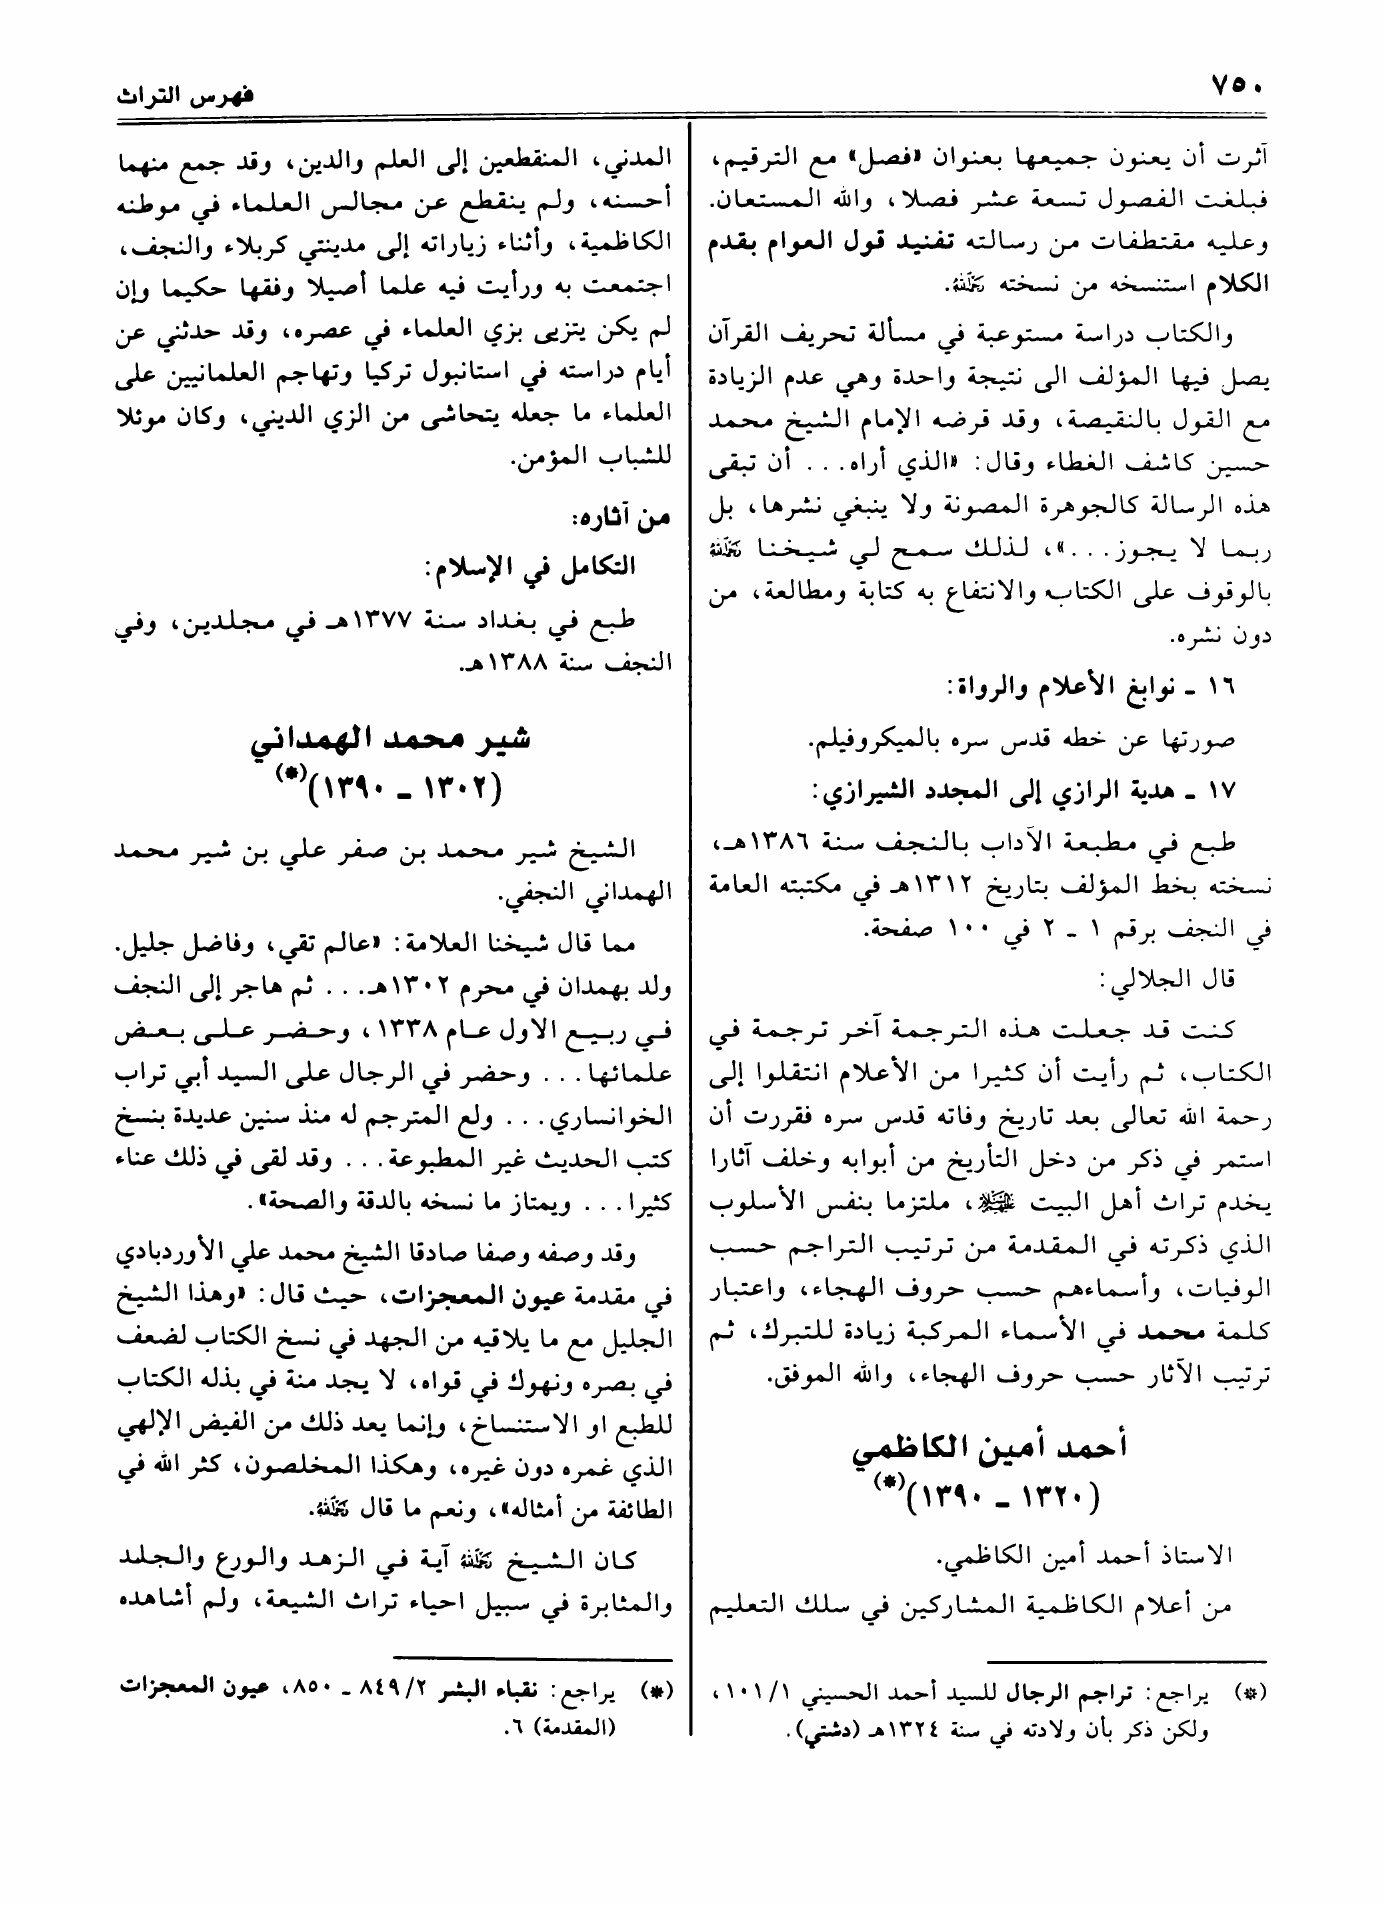 ٧٥٠
فهرس التراث
آثرت أن يعنون جميعها بعنوان «فصل» مع الترقيم،
فبلغت الفصول تسعة عشر فصلا، والله المستعان.
وعليه مقتطفات من رسالته تفنيد قول العوام بقدم
الكلام استنسخه من نسخته رحمه الله.
والكتاب دراسة مستوعبة في مسألة تحريف القرآن
يصل فيها المؤلف الى نتيجة واحدة وهي عدم الزيادة
مع القول بالنقيصة، وقد قرضه الإمام الشيخ محمد
حسين كاشف الغطاء وقال: «الذي أراه... أن تبقى
هذه الرسالة كالجوهرة المصونة ولا ينبغي نشرها، بل
ربما لا يجوز...»، لذلك سمح لي شيخنا رحمه الله
بالوقوف على الكتاب والانتفاع به كتابة ومطالعة، من
دون نشره.
١٦ ـ نوابغ الأعلام والرواة:
صورتها عن خطه قدس سره بالميكروفيلم.
١٧ ـ هدية الرازي إلى المجدد الشيرازي:
طبع في مطبعة الآداب بالنجف سنة ١٣٨٦هـ،
نسخته بخط المؤلف بتاريخ ١٣١٢هـ في مكتبته العامة
في النجف برقم ١ ـ ٢ في ١٠٠ صفحة.
قال الجلالي:
كنت قد جعلت هذه الترجمة آخر ترجمة في
الكتاب، ثم رأيت أن كثيرا من الأعلام انتقلوا إلى
رحمة الله تعالى بعد تاريخ وفاته قدس سره فقررت أن
استمر في ذكر من دخل التأريخ من أبوابه وخلف آثارا
يخدم تراث أهل البيت عليهم السلام، ملتزما بنفس الأسلوب
الذي ذكرته في المقدمة من ترتيب التراجم حسب
الوفيات، وأسماءهم حسب حروف الهجاء، واعتبار
كلمة محمد في الأسماء المركبة زيادة للتبرك، ثم
ترتيب الآثار حسب حروف الهجاء، والله الموفق.
أحمد أمين الكاظمي
(١٣٢٠ ـ ١٣٩٠)(*)
الاستاذ أحمد أمين الكاظمي.
من أعلام الكاظمية المشاركين في سلك التعليم
(*) يراجع: تراجم الرجال للسيد أحمد الحسيني ١٠١/١،
ولكن ذكر بأن ولادته في سنة ١٣٢٤هـ (دشتي).
المدني، المنقطعين إلى العلم والدين، وقد جمع منهما
أحسنه، ولم ينقطع عن مجالس العلماء في موطنه
الكاظمية، وأثناء زياراته إلى مدينتي كربلاء والنجف،
اجتمعت به ورأيت فيه علما أصيلا وفقها حكيما وإن
لم يكن يتزيى بزي العلماء في عصره، وقد حدثني عن
أيام دراسته في استانبول تركيا وتهاجم العلمانيين على
العلماء ما جعله يتحاشى من الزي الديني، وكان موئلا
للشباب المؤمن.
من آثاره:
التكامل في الإسلام:
طبع في بغداد سنة ١٣٧٧هـ في مجلدين، وفي
النجف سنة ١٣٨٨هـ.
شير محمد الهمداني
(١٣٠٢ ـ ١٣٩٠)(*)
الشيخ شير محمد بن صفر علي بن شير محمد
الهمداني النجفي.
مما قال شيخنا العلامة: «عالم تقي، وفاضل جليل.
ولد بهمدان في محرم ١٣٠٢هـ... ثم هاجر إلى النجف
في ربيع الاول عام ١٣٣٨، وحضر على بعض
علمائها... وحضر في الرجال على السيد أبي تراب
الخوانساري... ولع المترجم له منذ سنين عديدة بنسخ
كتب الحديث غير المطبوعة... وقد لقى في ذلك عناء
كثيرا... ويمتاز ما نسخه بالدقة والصحة».
وقد وصفه وصفا صادقا الشيخ محمد علي الأوردبادي
في مقدمة عيون المعجزات، حيث قال: «وهذا الشيخ
الجليل مع ما يلاقيه من الجهد في نسخ الكتاب لضعف
في بصره ونهوك في قواه، لا يجد منة في بذله الكتاب
للطبع او الاستنساخ، وإنما يعد ذلك من الفيض الإلهي
الذي غمره دون غيره، وهكذا المخلصون، كثر الله في
الطائفة من أمثاله»، ونعم ما قال رحمه الله.
كان الشيخ رحمه الله آية في الزهد والورع والجلد
والمثابرة في سبيل احياء تراث الشيعة، ولم أشاهده
(*) يراجع: نقباء البشر ٨٤٩/٢ ـ ٨٥٠، عيون المعجزات
(المقدمة) ٦.